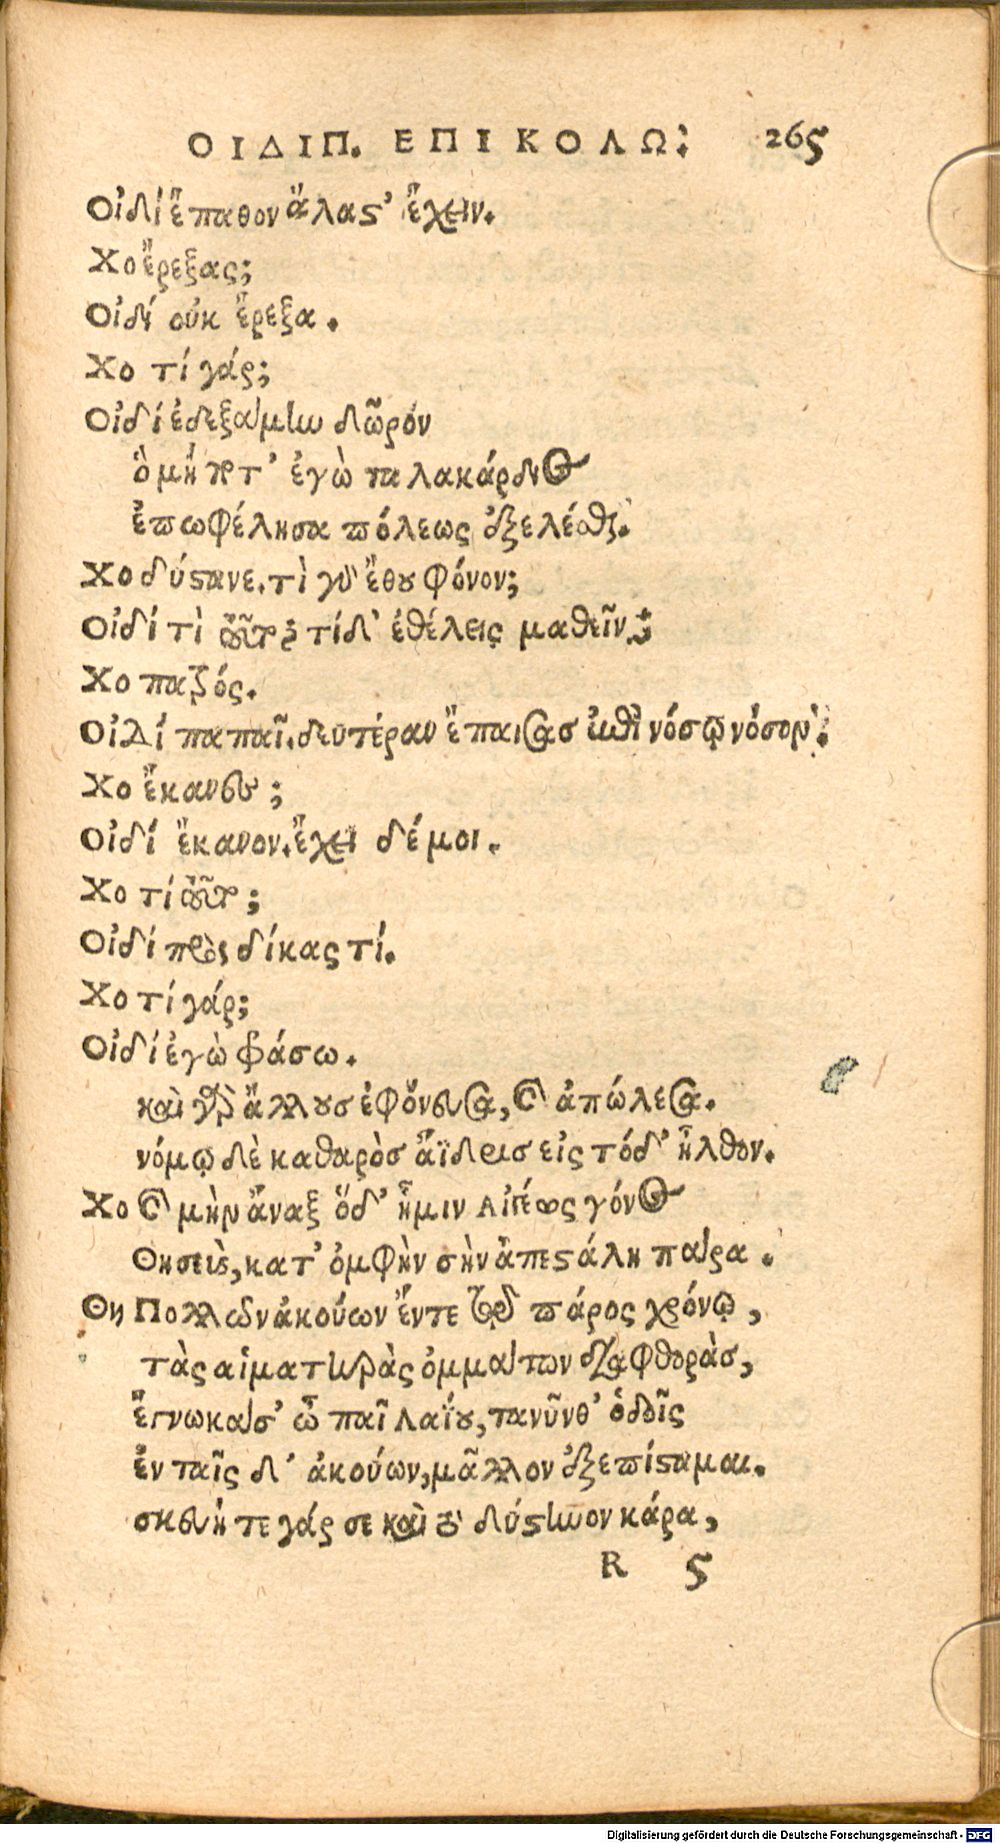 ΟΙΔΙΠ. ΕΠΙ ΚΟΛΩ: 265
Οἰδί ἔπαθον ἄλαστ’ ἔχειν.
Χο ἔρεξας;
Οἰδί οὐκ ἔρεξα.
Χο τί γάρ;
Οἰδί ἐδεξάμην δῶρόν
ὃ μήποτ’ ἐγὼ ταλακάρδιος
ἐπωφέλησα πόλεως ἐξελέσθαι.
Χο δύστανε, τὶ γὰρ ἔθου φόνον;
Οἰδί τὶ τοῦτο; τί δ’ ἐθέλεις μαθεῖν;
Χο πατρός.
Οἰδί παπαῖ. δευτέραν ἔπαισασ ἐπὶ νόσῳ νόσον.
Χο ἔκανες;
Οἰδί ἔκανον. ἔχει δέ μοι.
Χο τί τοῦτο;
Οἰδί πρὸς δίκας τί.
Χο τί γάρ;
Οἰδί ἐγὼ φράσω.
καὶ γὰρ ἄλλουσ ἐφόνευσα, καὶ ἀπώλεσα.
νόμῳ δὲ καθαρὸσ ἄϊδρισ εἰς τόδ’ ἦλθον.
Χο καὶ μὴν ἄναξ ὅδ’ ἥμιν Αἰγέως γόνος
Θησεὺς, κατ’ ὀμφὴν σὴν ἀπεστάλη πάρα.
Θη Πολλῶν ἀκούων ἔν τε τῷ πάρος χρόνῳ,
τὰς αἱματηρὰς ὀμμάτων διαφθορὰσ,
ἔγνωκά σ’ ὦ παῖ Λαΐου, τανῦν θ’ ὁδοῖς
ἐν ταῖς δ’ ἀκούων, μᾶλλον ἐξεπίσταμαι.
σκευή τε γάρ σε καὶ τὸ δύστηνον κάρα,
R 5
Digitalisierung gefördert durch die Deutsche Forschungsgemeinschaft - DFG